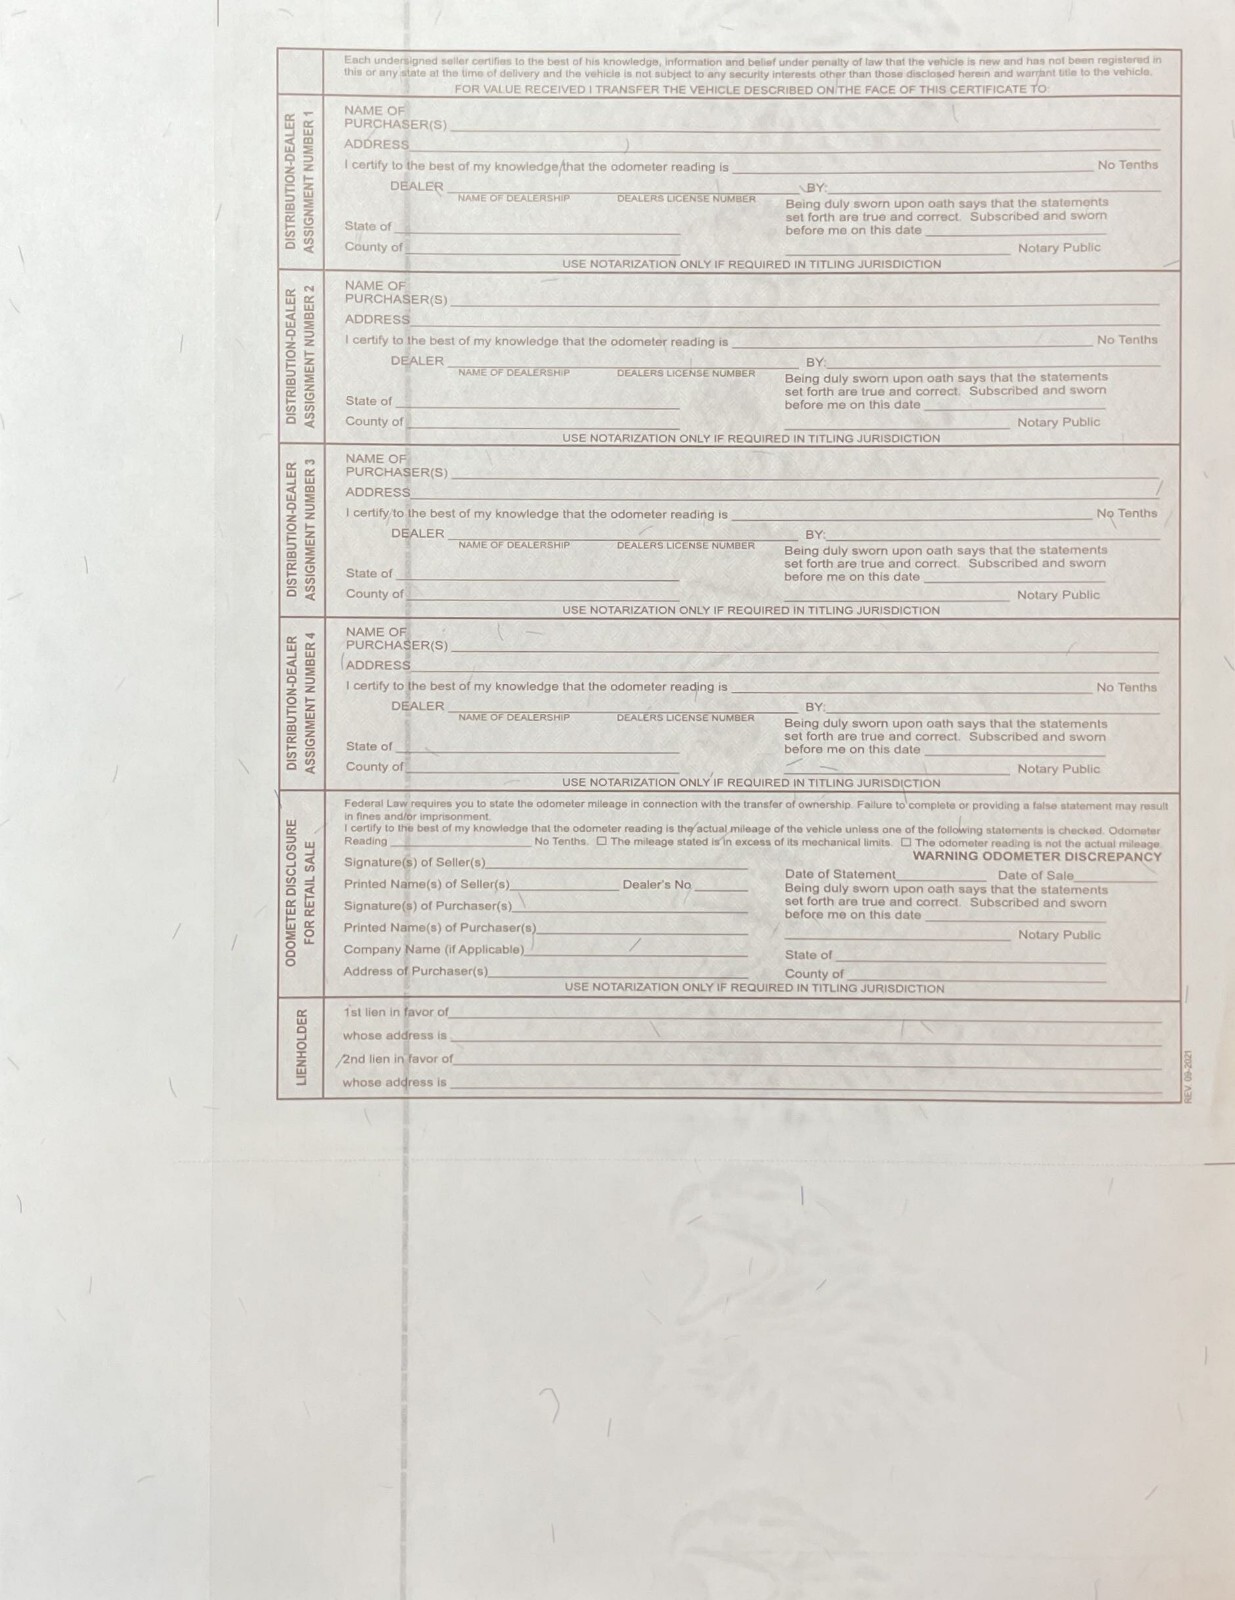 Each undersigned seller certifies to the best of his knowledge, information and belief under penalty of law that the vehicle is new and has not been registered in
this or any state at the time of delivery and the vehicle is not subject to any security interests other than those disclosed herein and warrant title to the vehicle.
FOR VALUE RECEIVED I TRANSFER THE VEHICLE DESCRIBED ON THE FACE OF THIS CERTIFICATE TO:
DISTRIBUTION-DEALER
ASSIGNMENT NUMBER 1
NAME OF
PURCHASER(S)
ADDRESS
I certify to the best of my knowledge that the odometer reading is No Tenths
DEALER BY:
NAME OF DEALERSHIP DEALERS LICENSE NUMBER
Being duly sworn upon oath says that the statements
set forth are true and correct. Subscribed and sworn
State of before me on this date
County of Notary Public
USE NOTARIZATION ONLY IF REQUIRED IN TITLING JURISDICTION
DISTRIBUTION-DEALER
ASSIGNMENT NUMBER 2
NAME OF
PURCHASER(S)
ADDRESS
I certify to the best of my knowledge that the odometer reading is No Tenths
DEALER BY:
NAME OF DEALERSHIP DEALERS LICENSE NUMBER
Being duly sworn upon oath says that the statements
set forth are true and correct. Subscribed and sworn
State of before me on this date
County of Notary Public
USE NOTARIZATION ONLY IF REQUIRED IN TITLING JURISDICTION
DISTRIBUTION-DEALER
ASSIGNMENT NUMBER 3
NAME OF
PURCHASER(S)
ADDRESS
I certify to the best of my knowledge that the odometer reading is No Tenths
DEALER BY:
NAME OF DEALERSHIP DEALERS LICENSE NUMBER
Being duly sworn upon oath says that the statements
set forth are true and correct. Subscribed and sworn
State of before me on this date
County of Notary Public
USE NOTARIZATION ONLY IF REQUIRED IN TITLING JURISDICTION
DISTRIBUTION-DEALER
ASSIGNMENT NUMBER 4
NAME OF
PURCHASER(S)
ADDRESS
I certify to the best of my knowledge that the odometer reading is No Tenths
DEALER BY:
NAME OF DEALERSHIP DEALERS LICENSE NUMBER
Being duly sworn upon oath says that the statements
set forth are true and correct. Subscribed and sworn
State of before me on this date
County of Notary Public
USE NOTARIZATION ONLY IF REQUIRED IN TITLING JURISDICTION
ODOMETER DISCLOSURE
FOR RETAIL SALE
Federal Law requires you to state the odometer mileage in connection with the transfer of ownership. Failure to complete or providing a false statement may result
in fines and/or imprisonment.
I certify to the best of my knowledge that the odometer reading is the actual mileage of the vehicle unless one of the following statements is checked. Odometer
Reading No Tenths. ☐ The mileage stated is in excess of its mechanical limits. ☐ The odometer reading is not the actual mileage.
WARNING ODOMETER DISCREPANCY
Signature(s) of Seller(s)
Printed Name(s) of Seller(s) Dealer's No
Signature(s) of Purchaser(s)
Printed Name(s) of Purchaser(s)
Company Name (if Applicable)
Address of Purchaser(s)
Date of Statement Date of Sale
Being duly sworn upon oath says that the statements
set forth are true and correct. Subscribed and sworn
before me on this date
Notary Public
State of
County of
USE NOTARIZATION ONLY IF REQUIRED IN TITLING JURISDICTION
LIENHOLDER
1st lien in favor of
whose address is
2nd lien in favor of
whose address is
REV. 09-2021